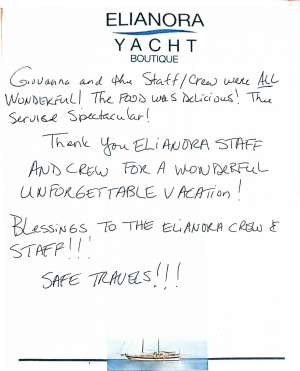 ELIANORA
YACHT
BOUTIQUE
Giovanna and the Staff/Crew were ALL
WONDERFUL! The FOOD was Delicious! The
Servise Spectacular!
Thank You ELIANORA STAFF
AND CREW FOR A WONDERFUL
UNFORGETTABLE VACATION!
Blessings TO THE ELIANORA CREW &
STAFF!!!
SAFE TRAVELS!!!